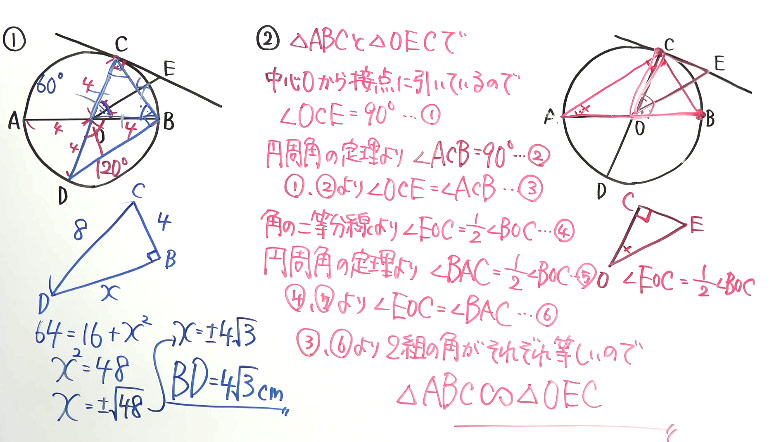 ①
C
E
60°
4
A
4
O
4
B
4
120°
D
C
8
4
B
D
x
64=16+x²
x²=48
x=±√48
x=±4√3
BD=4√3cm
② △ABCと△OECで
中心Oから接点に引いているので
∠OCE=90°…①
円周角の定理より ∠ACB=90°…②
①、②より∠OCE=∠ACB…③
角の二等分線より∠EOC=1/2∠BOC…④
円周角の定理より ∠BAC=1/2∠BOC…⑤
④、⑤より∠EOC=∠BAC…⑥
③、⑥より2組の角がそれぞれ等しいので
△ABC∽△OEC
C
E
A
×
O
B
D
C
E
×
O
∠EOC=1/2∠BOC